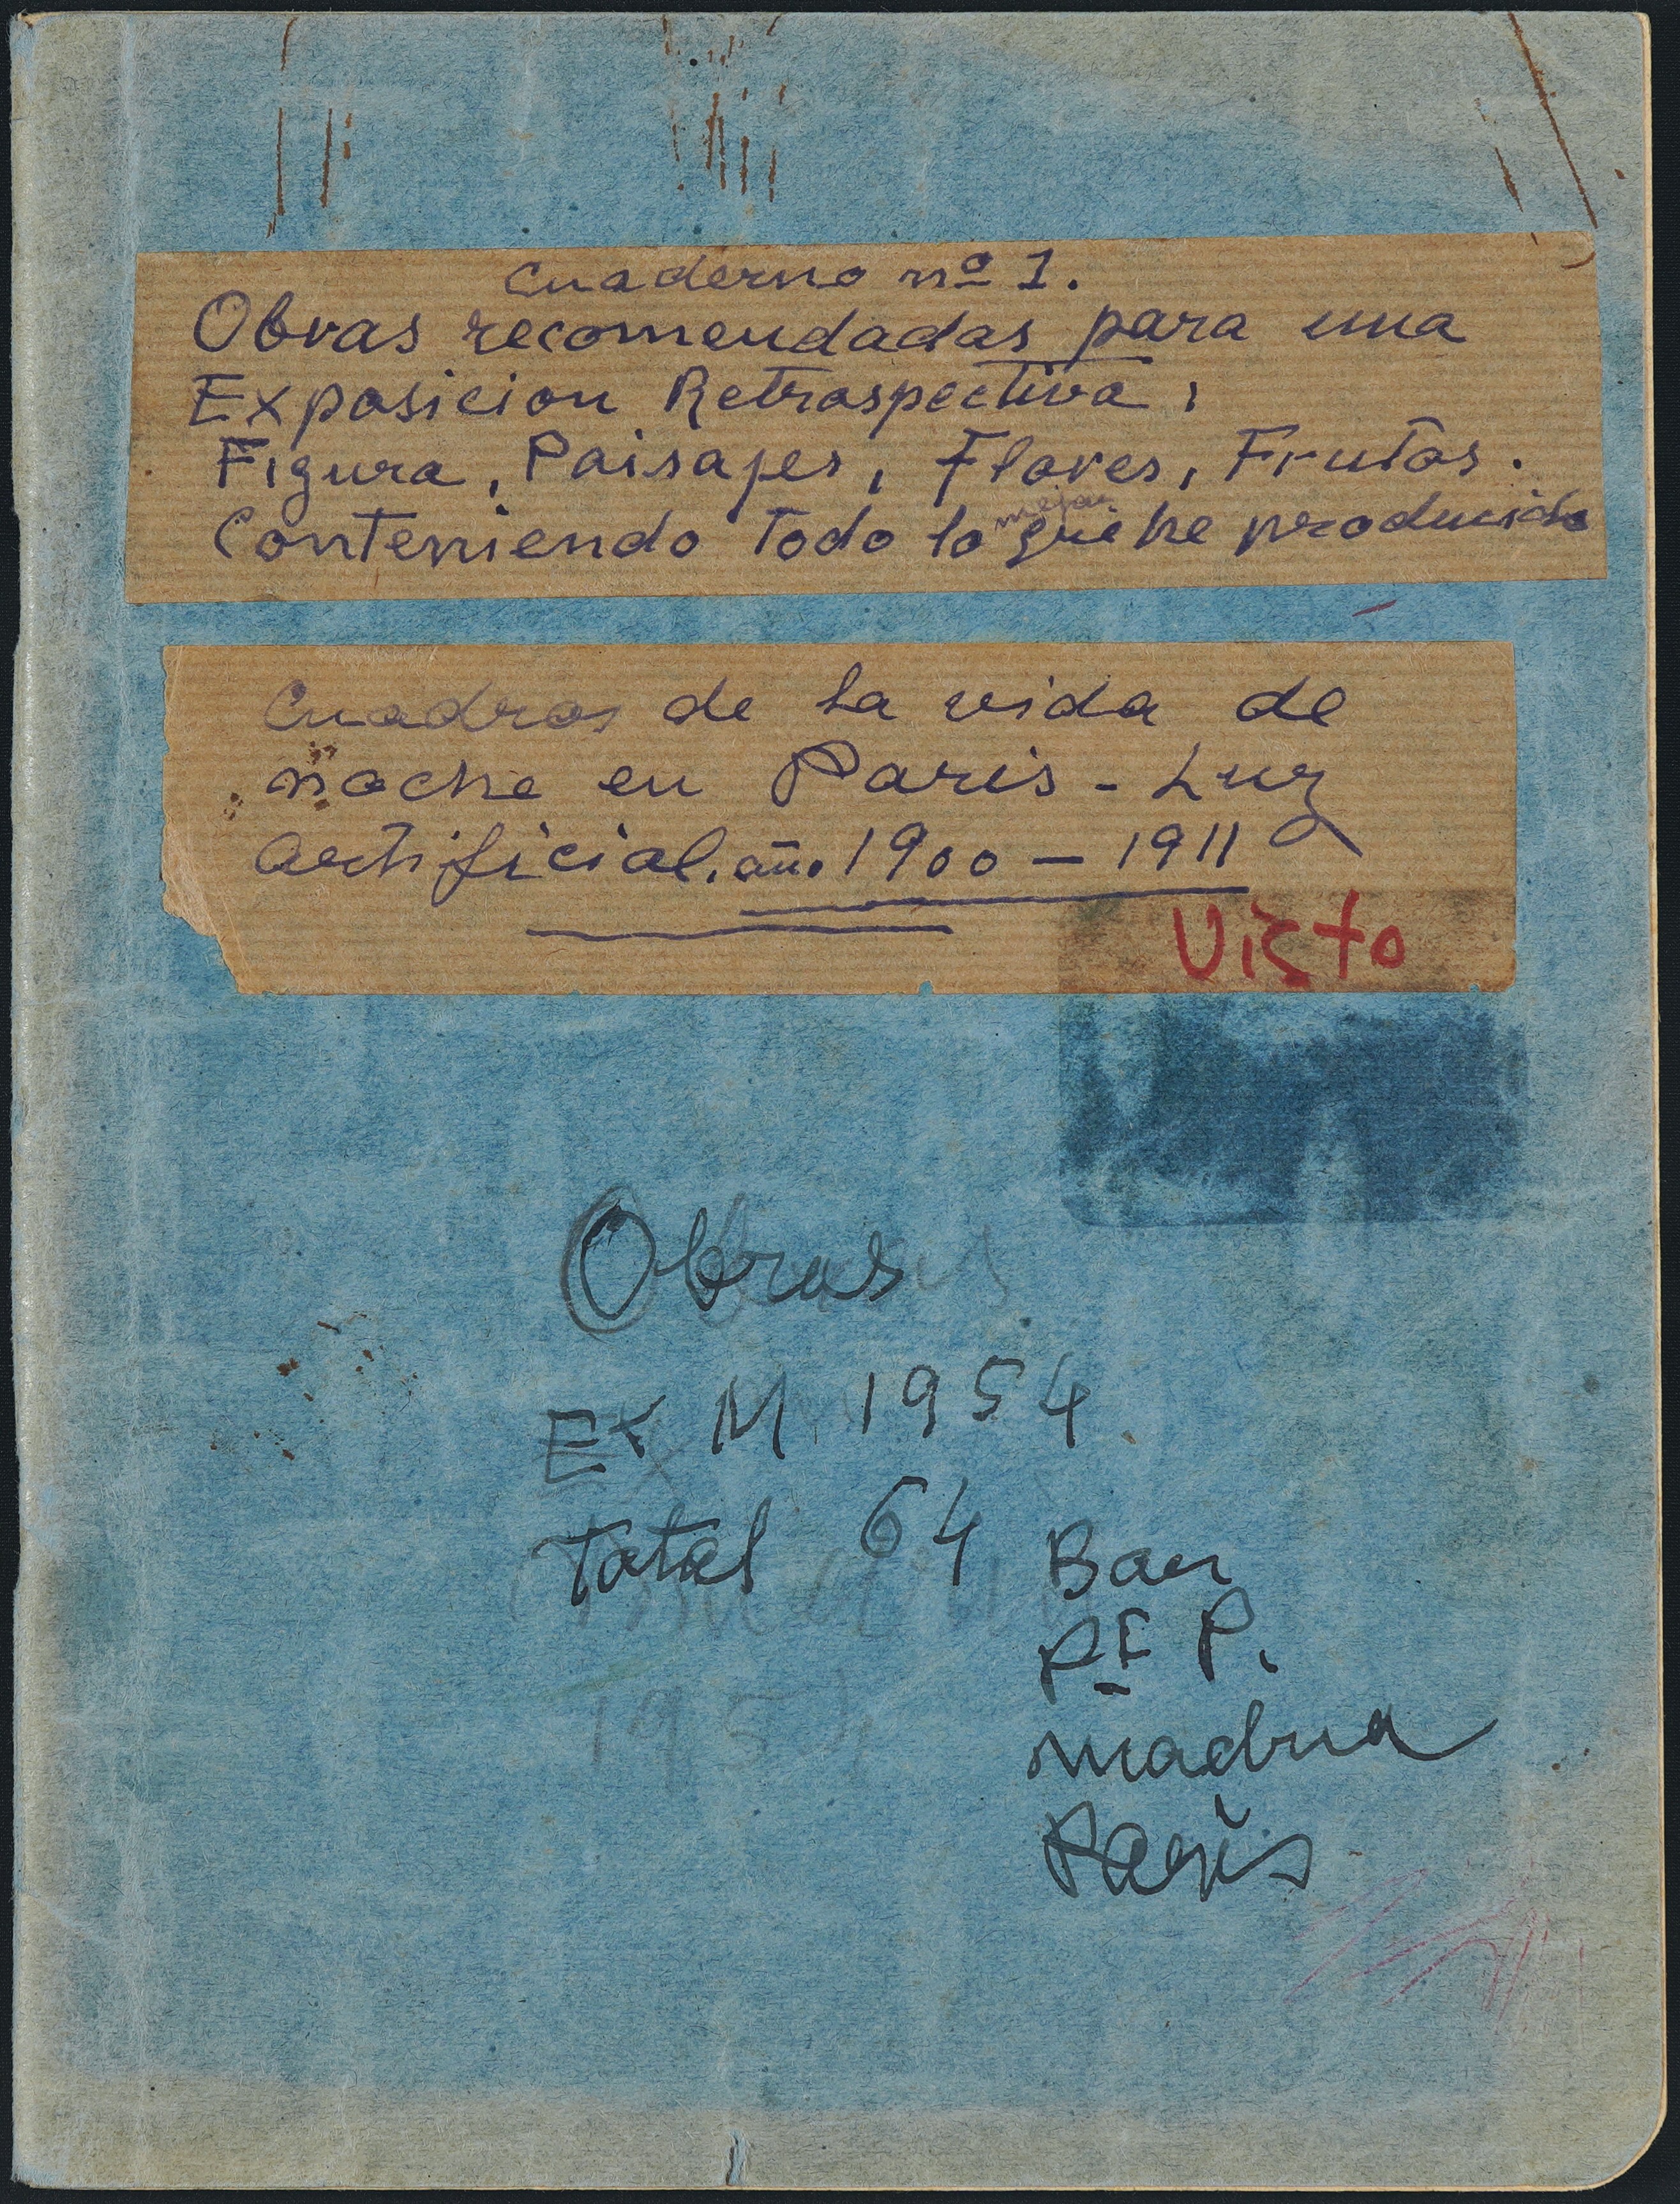 Cuaderno nº 1.
Obras recomendadas para una
Exposicion Retrospectiva,
Figura, Paisajes, Flores, Frutos.
mejor
Conteniendo Todo lo que he producido
Cuadros de la vida de
noche en Paris - Luz
artificial. año 1900 - 1911
Visto
Obras
Ex M 1954
Total 64
P. 
Paris
195